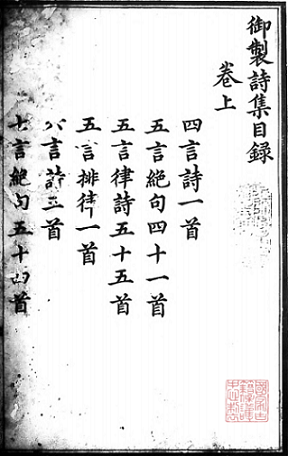 御製詩集目錄
卷上
四言詩一首
五言絕句四十一首
五言律詩五十五首
五言排律一首
六言詩三首
七言絕句五十四首